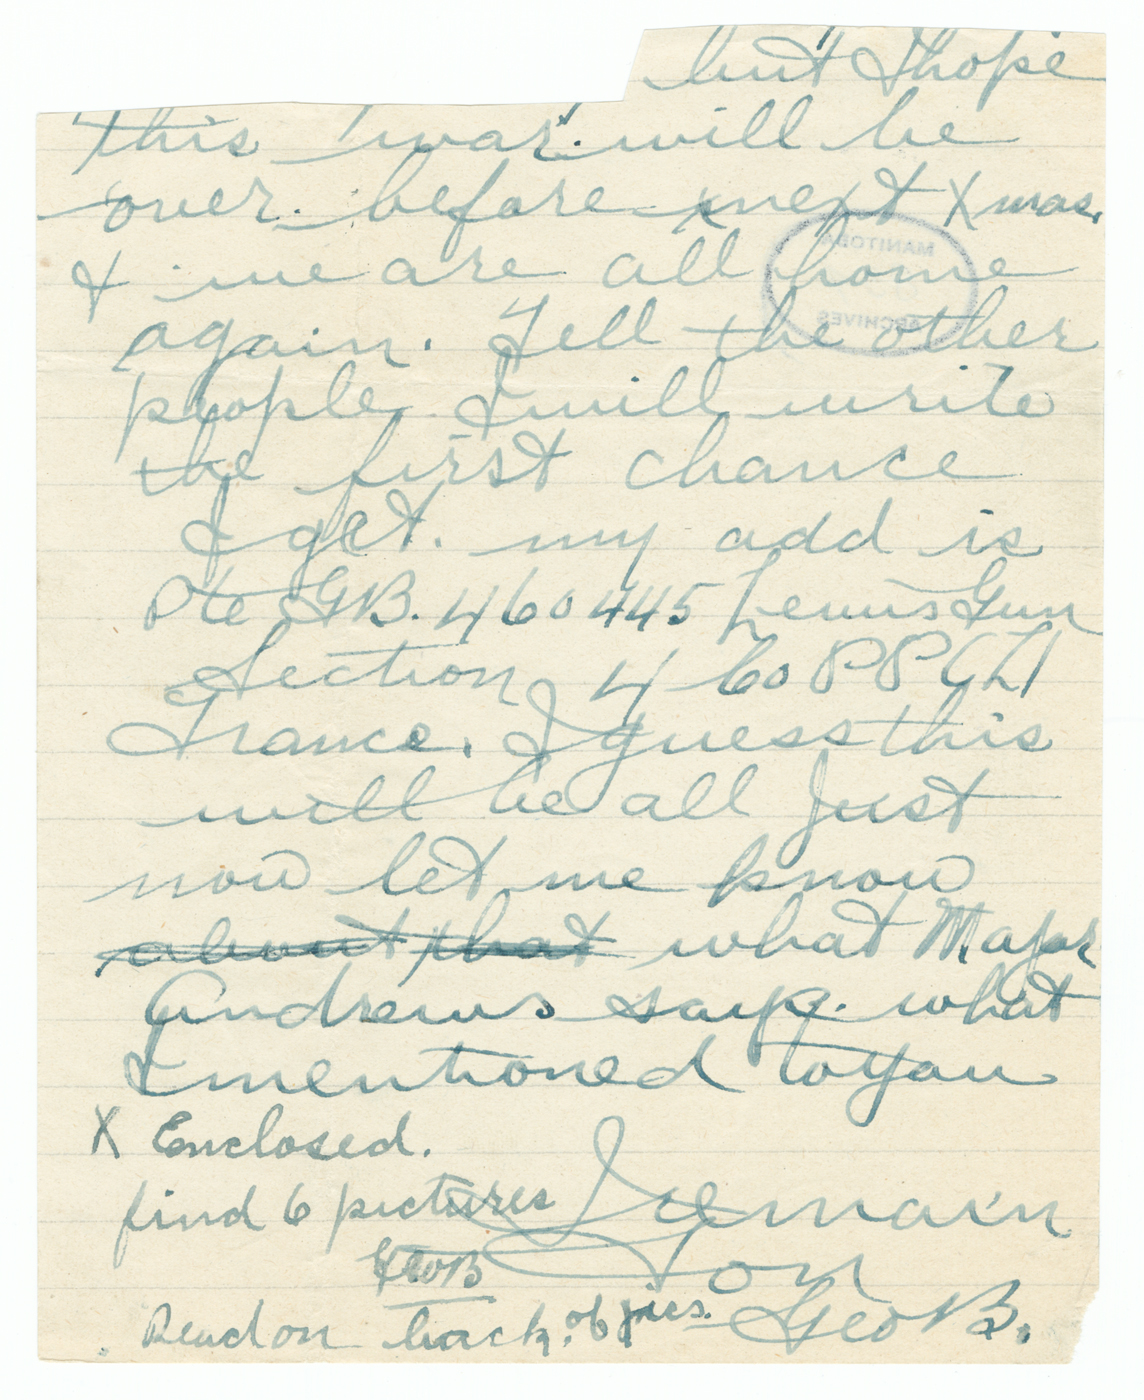 but I hope
this war will be
over before next Xmas.
& we are all home
MANITOBA
ARCHIVES
again. Tell the other
people I will write
the first chance
I get. my add is
Pte GB. 460445 Lewis Gun
Section 4 Co PPCLI
France. I guess this
will be all Just
now let me know
about that what Major
Andrews says. what
I mentioned to you
X Enclosed.
find 6 pictures
I remain
Geo B
Son
Read on back of pics.
Geo B.